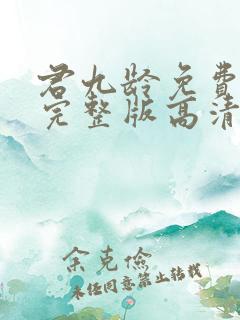 君九龄免费
完整版高清
余克俭
未经同意禁止转载